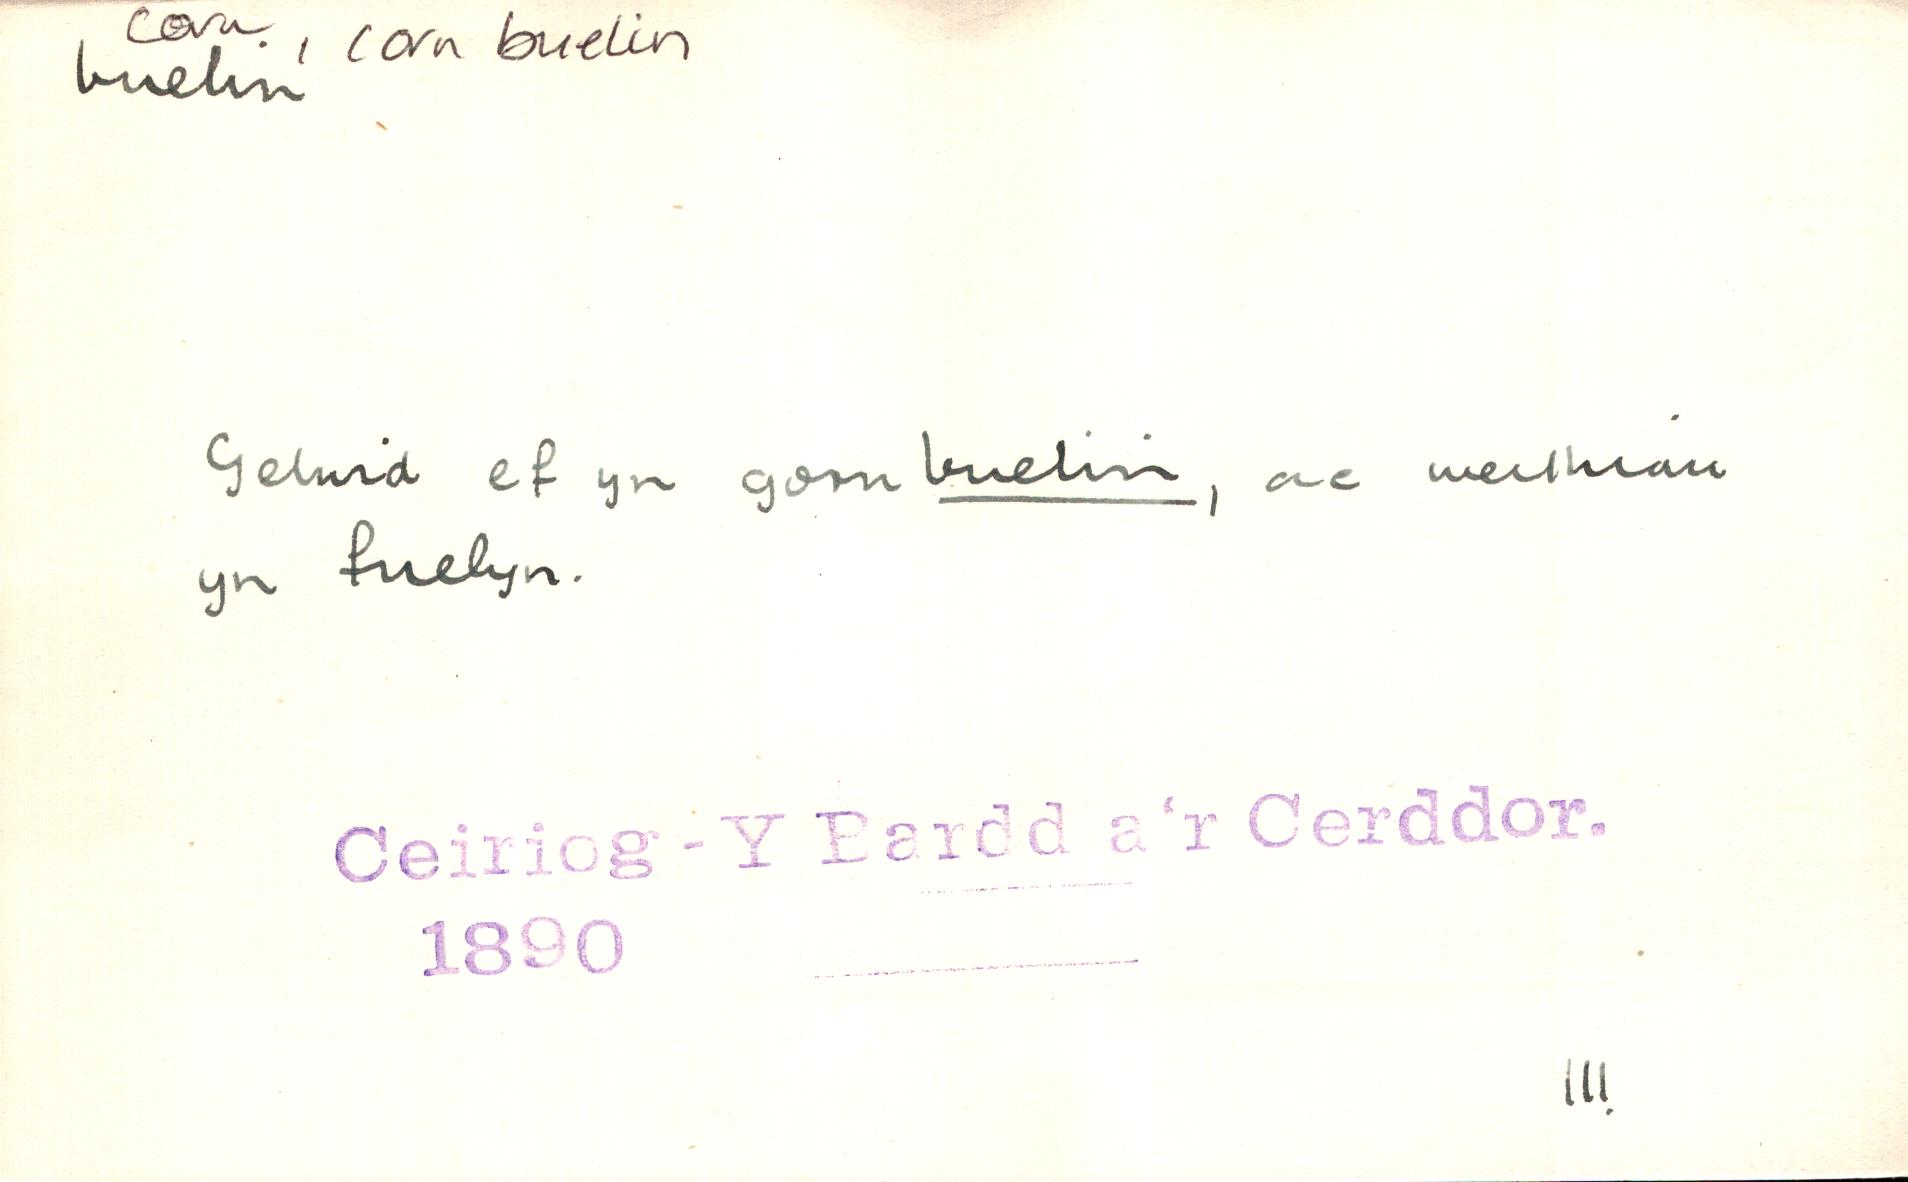 corn., corn buelin
buelin
Gelwid ef yn gorn buelin, ac weithiau
yn fuelyn.
Ceiriog - Y Bardd a'r Cerddor.
1890
111.